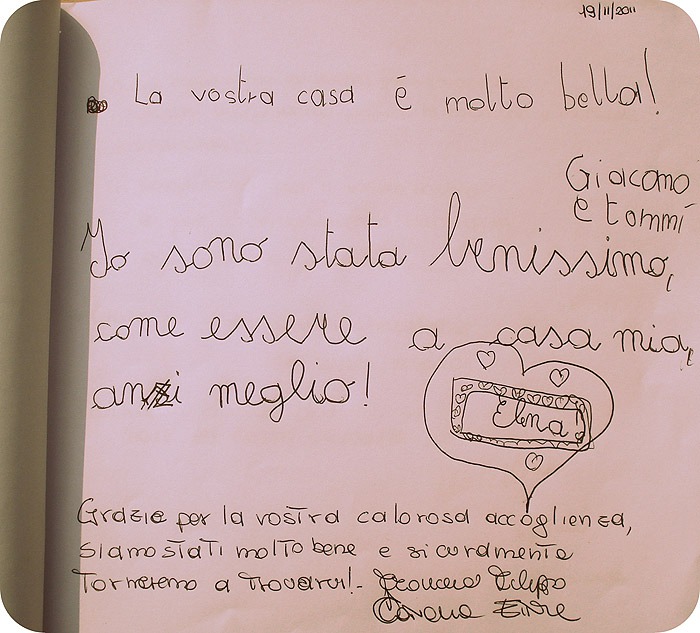 19/11/2011
La vostra casa é molto bella!
Giacomo
e tommi
Io sono stata benissimo,
come essere a casa mia,
anzi meglio!
Elena!
Grazie per la vostra calorosa accoglienza,
siamo stati molto bene e sicuramente
torneremo a trovarvi!-
Filippo